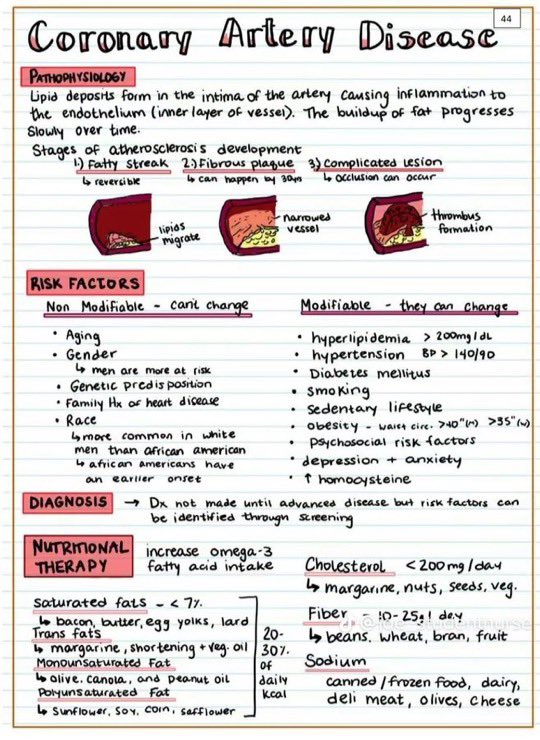 44
Coronary Artery Disease
PATHOPHYSIOLOGY
Lipid deposits form in the intima of the artery causing inflammation to
the endothelium (inner layer of vessel). The buildup of fat progresses
slowly over time.
Stages of atherosclerosis development
1.) Fatty Streak 2.) Fibrous plaque 3.) Complicated lesion
↳ reversible ↳ can happen by 30yrs ↳ occlusion can occur
lipids
migrate
narrowed
vessel
thrombus
formation
RISK FACTORS
Non Modifiable - can't change
• Aging
• Gender
↳ men are more at risk
• Genetic predisposition
• Family Hx of heart disease
• Race
↳ more common in white
men than african american
↳ african americans have
an earlier onset
Modifiable - they can change
• hyperlipidemia > 200mg/dL
• hypertension BP > 140/90
• Diabetes mellitus
• smoking
• sedentary lifestyle
• obesity - waist circ. >40"(m) >35"(w)
• psychosocial risk factors
• depression + anxiety
• ↑ homocysteine
DIAGNOSIS → Dx not made until advanced disease but risk factors can
be identified through screening
NUTRITIONAL
THERAPY
increase omega-3
fatty acid intake
Saturated fats - < 7%
↳ bacon, butter, egg yolks, lard
Trans fats
↳ margarine, shortening + veg. oil
Monounsaturated Fat
↳ olive, canola, and peanut oil
Polyunsaturated Fat
↳ sunflower, soy, corn, safflower
20-
30%
of
daily
kcal
Cholesterol < 200mg/day
↳ margarine, nuts, seeds, veg.
Fiber - 10-25g/day
↳ beans, wheat, bran, fruit
Sodium
canned/frozen food, dairy,
deli meat, olives, cheese